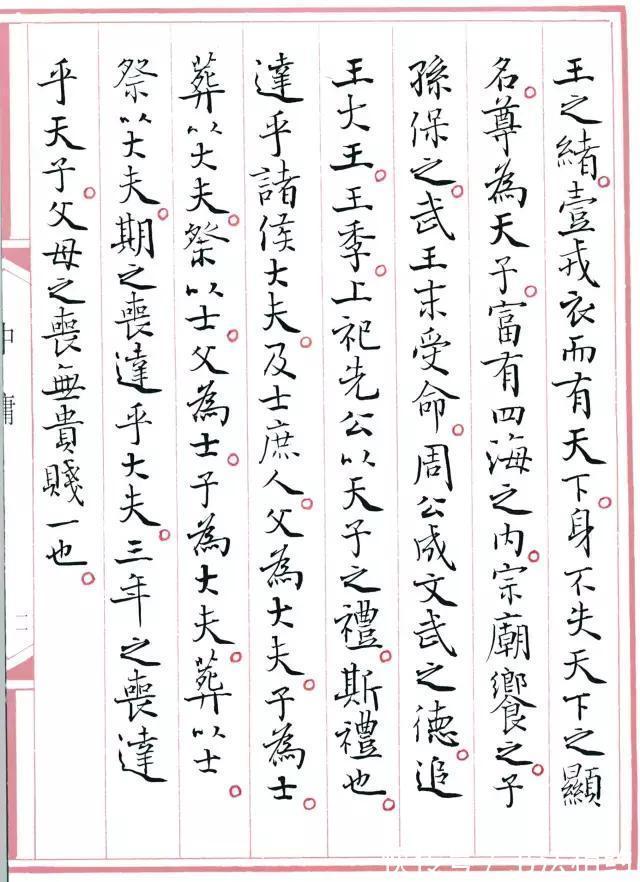 王之緒。壹戎衣而有天下。身不失天下之顯
名。尊為天子。富有四海之内。宗廟饗之。子
孫保之。武王末受命。周公成文武之德。追
王大王。王季。上祀先公以天子之禮。斯禮也。
達乎諸侯大夫。及士庶人。父為大夫。子為士。
葬以大夫。祭以士。父為士。子為大夫。葬以士。
祭以大夫。期之喪達乎大夫。三年之喪達
乎天子。父母之喪無貴賤一也。
中庸
二